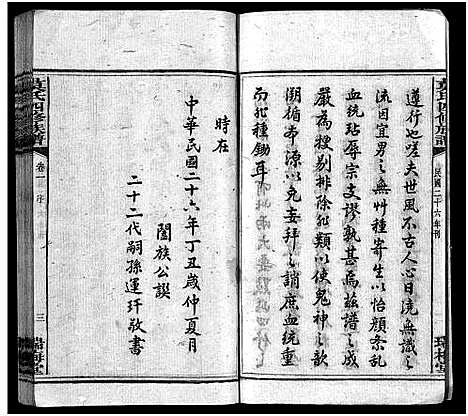 民國二十六年刊
遵行也嗟夫世風不古人心日澆無識之
流因宜男之無艸種寄生以怡顏紊亂
血統玷辱宗支謬孰甚焉茲譜之成
嚴為搜剔排除他類以使鬼神之歆
溯循本源以免妄拜之誚庶血統重
而非種鋤耳
時在
中華民國二十六年丁丑歲仲夏月
闔族公譔
二十二代嗣孫運玕敬書
四修族譜
卷一 序
三